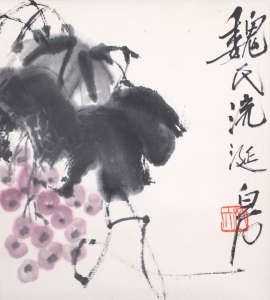 魏氏流涎
白石